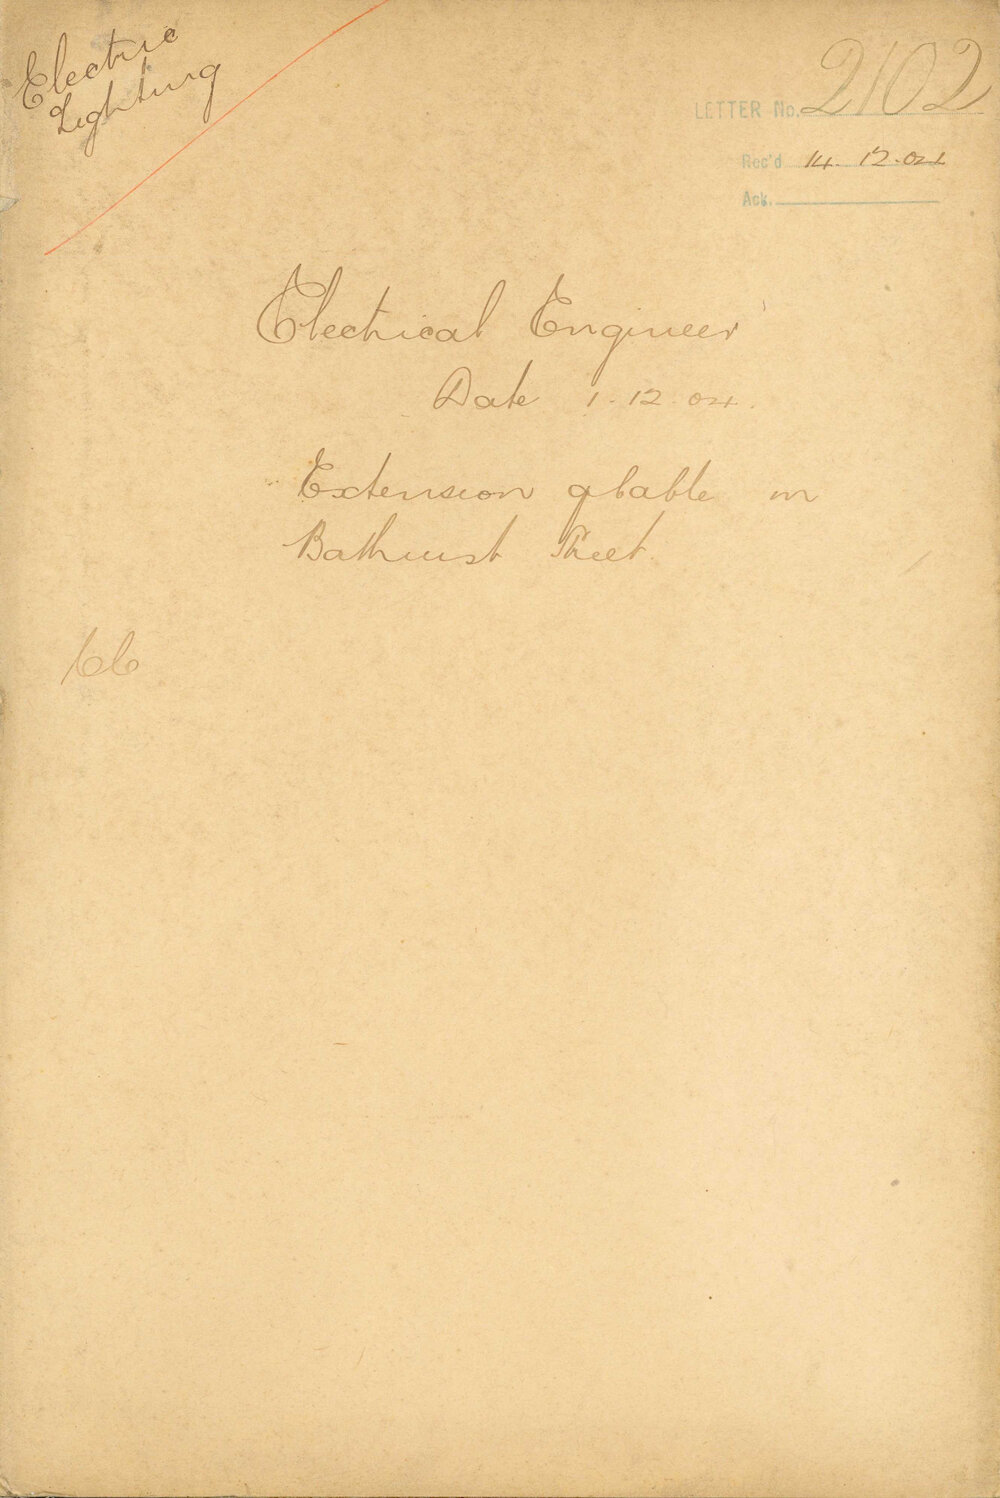 Electric
Lighting
LETTER No. 2102
Rec'd 14.12.04
Ack.
Electrical Engineer
Date 1.12.04.
Extension of Cable in
Bathurst Street.